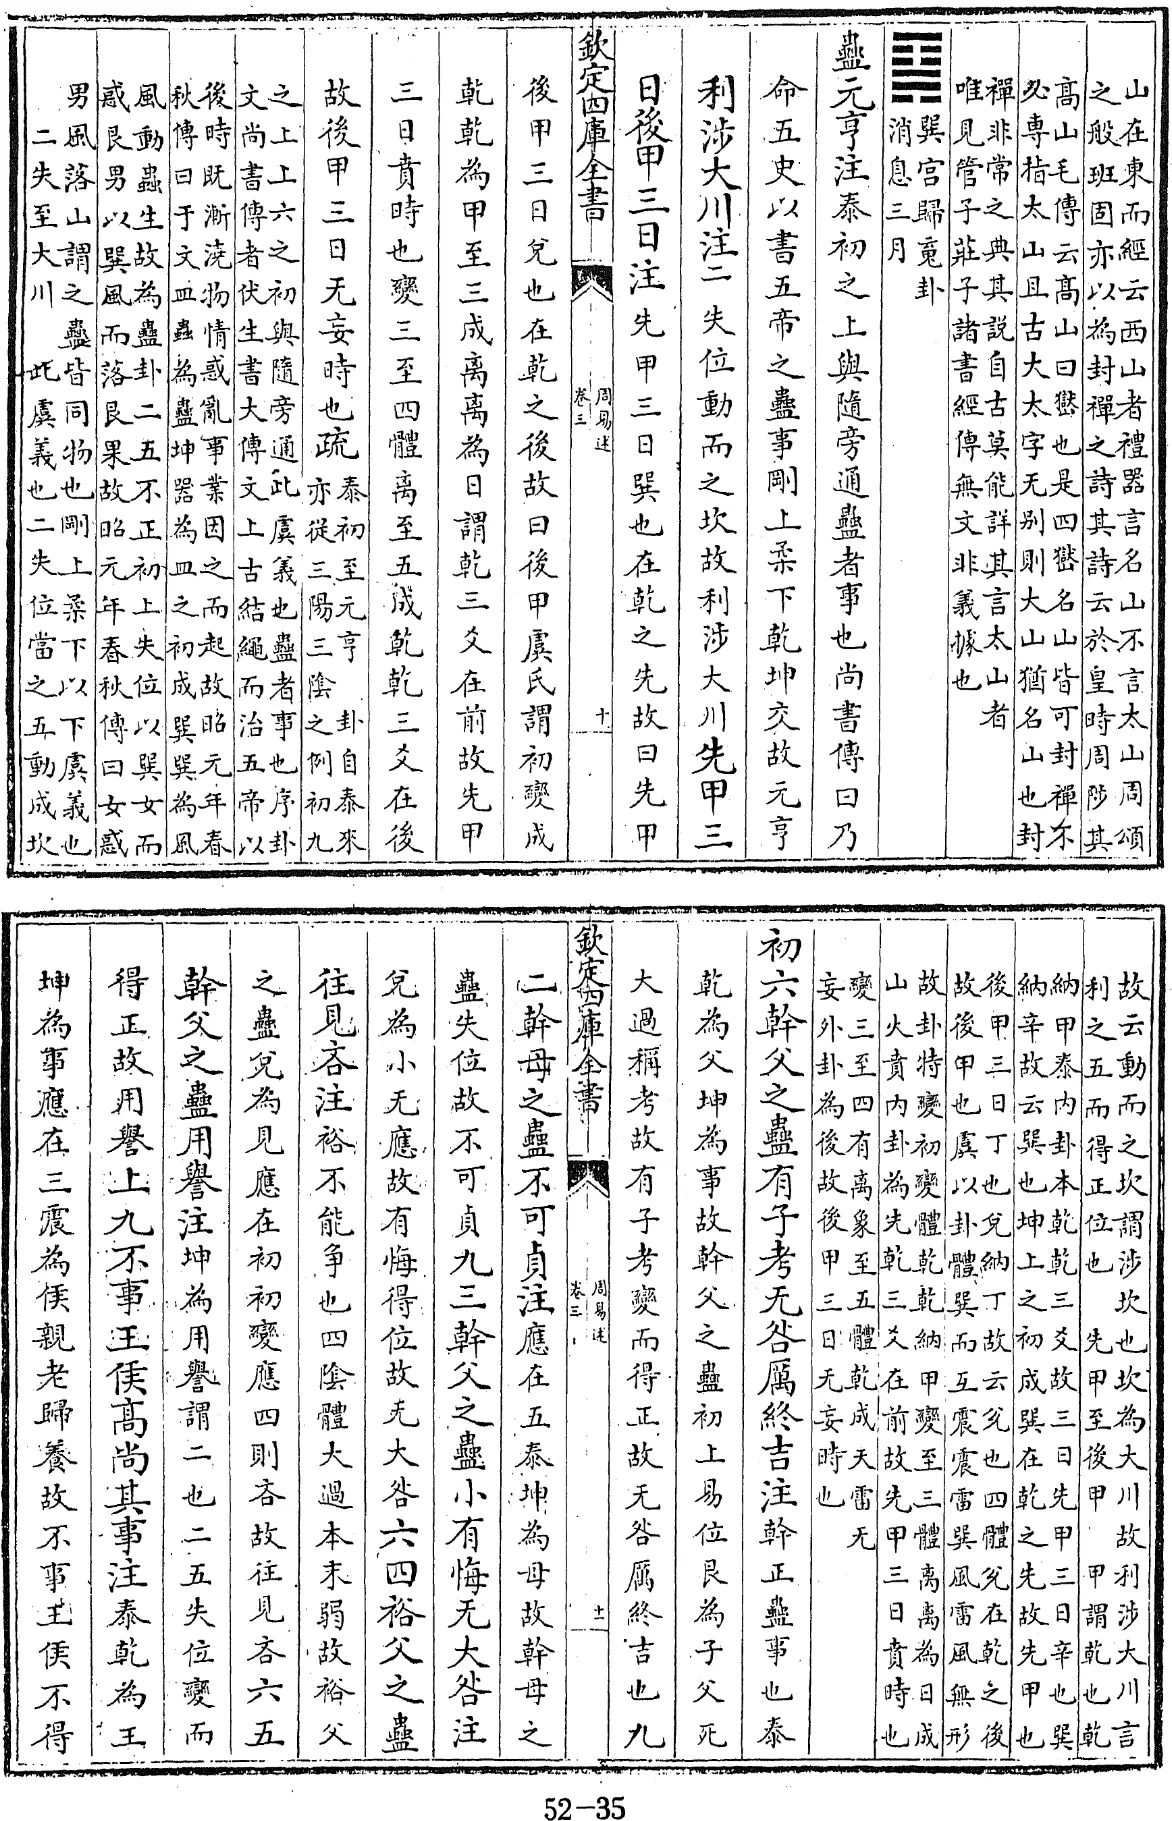 山在東而經云西山者禮器言名山不言太山周頌
之般班固亦以為封禪之詩其詩云於皇時周陟其
高山毛傳云高山曰嶽也是四嶽名山皆可封禪不
必專指太山且古大太字无别則大山猶名山也封
禪非常之典其說自古莫能詳其言太山者
唯見管子莊子諸書經傳無文非義據也
䷑巽宮歸䰟卦
消息三月
蠱元亨注泰初之上與隨旁通蠱者事也尚書傳曰乃
命五史以書五帝之蠱事剛上柔下乾坤交故元亨
利涉大川注二失位動而之坎故利涉大川先甲三
日後甲三日注先甲三日巽也在乾之先故曰先甲
欽定四庫全書
周易述
卷三
十
後甲三日兌也在乾之後故曰後甲虞氏謂初變成
乾乾為甲至三成离离為日謂乾三爻在前故先甲
三日賁時也變三至四體离至五成乾乾三爻在後
故後甲三日无妄時也疏
泰初至元亨 卦自泰來
亦從三陽三陰之例初九
之上上六之初與隨旁通此虞義也蠱者事也序卦
文尚書傳者伏生書大傳文上古結繩而治五帝以
後時既漸澆物情惑亂事業因之而起故昭元年春
秋傳曰于文皿蟲為蠱坤器為皿之初成巽巽為風
風動蟲生故為蠱卦二五不正初上失位以巽女而
惑艮男以巽風而落艮果故昭元年春秋傳曰女惑
男風落山謂之蠱皆同物也剛上柔下以下虞義也
二失至大川 此虞義也二失位當之五動成坎
故云動而之坎謂涉坎也坎為大川故利涉大川言
利之五而得正位也 先甲至後甲 甲謂乾也乾
納甲泰内卦本乾乾三爻故三日先甲三日辛也巽
納辛故云巽也坤上之初成巽在乾之先故先甲也
後甲三日丁也兌納丁故云兌也四體兌在乾之後
故後甲也虞以卦體巽而互震震雷巽風雷風無形
故卦特變初變體乾乾納甲變至三體离离為日成
山火賁内卦為先乾三爻在前故先甲三日賁時也
變三至四有离象至五體乾成天雷无
妄外卦為後故後甲三日无妄時也
初六幹父之蠱有子考无咎厲終吉注幹正蠱事也泰
乾為父坤為事故幹父之蠱初上易位艮為子父死
大過稱考故有子考變而得正故无咎厲終吉也九
欽定四庫全書
周易述
卷三
十一
二幹母之蠱不可貞注應在五泰坤為母故幹母之
蠱失位故不可貞九三幹父之蠱小有悔无大咎注
兌為小无應故有悔得位故无大咎六四裕父之蠱
往見吝注裕不能爭也四陰體大過本末弱故裕父
之蠱兌為見應在初初變應四則吝故往見吝六五
幹父之蠱用譽注坤為用譽謂二也二五失位變而
得正故用譽上九不事王侯高尚其事注泰乾為王
坤為事應在三震為侯親老歸養故不事王侯不得
52-35